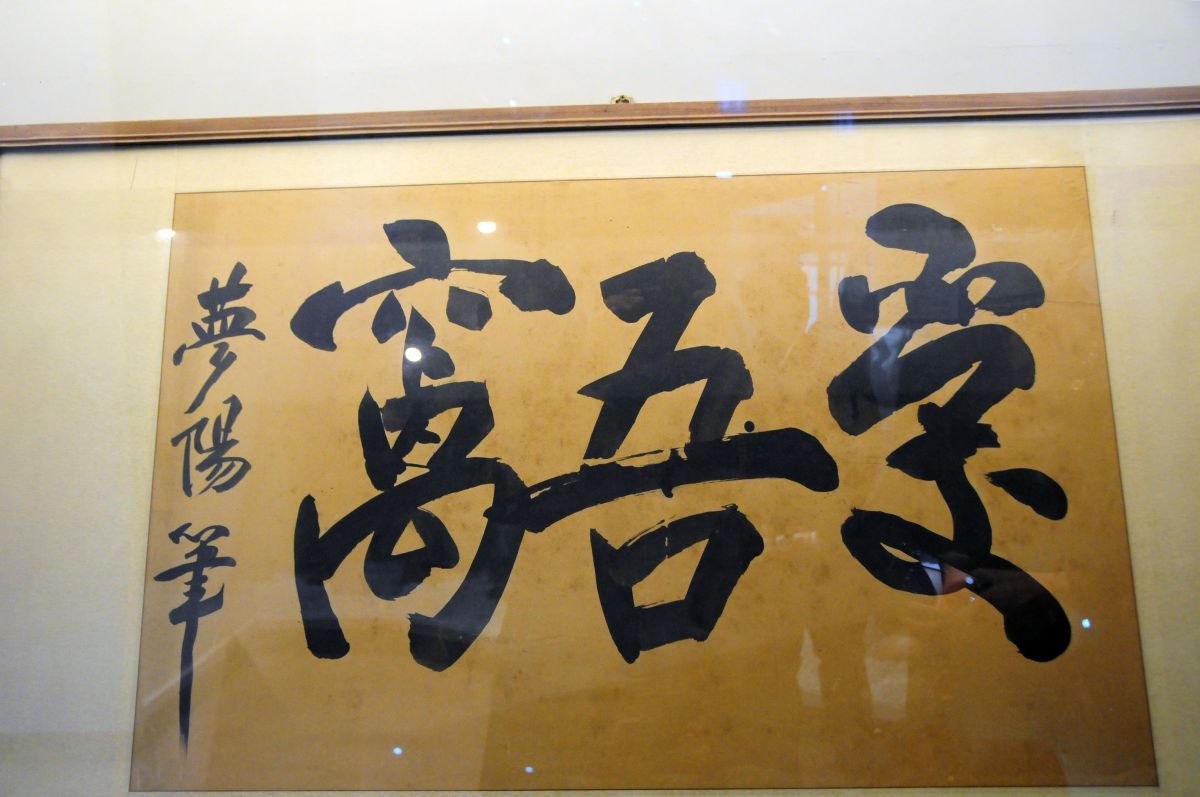 愛吾窩
夢陽筆